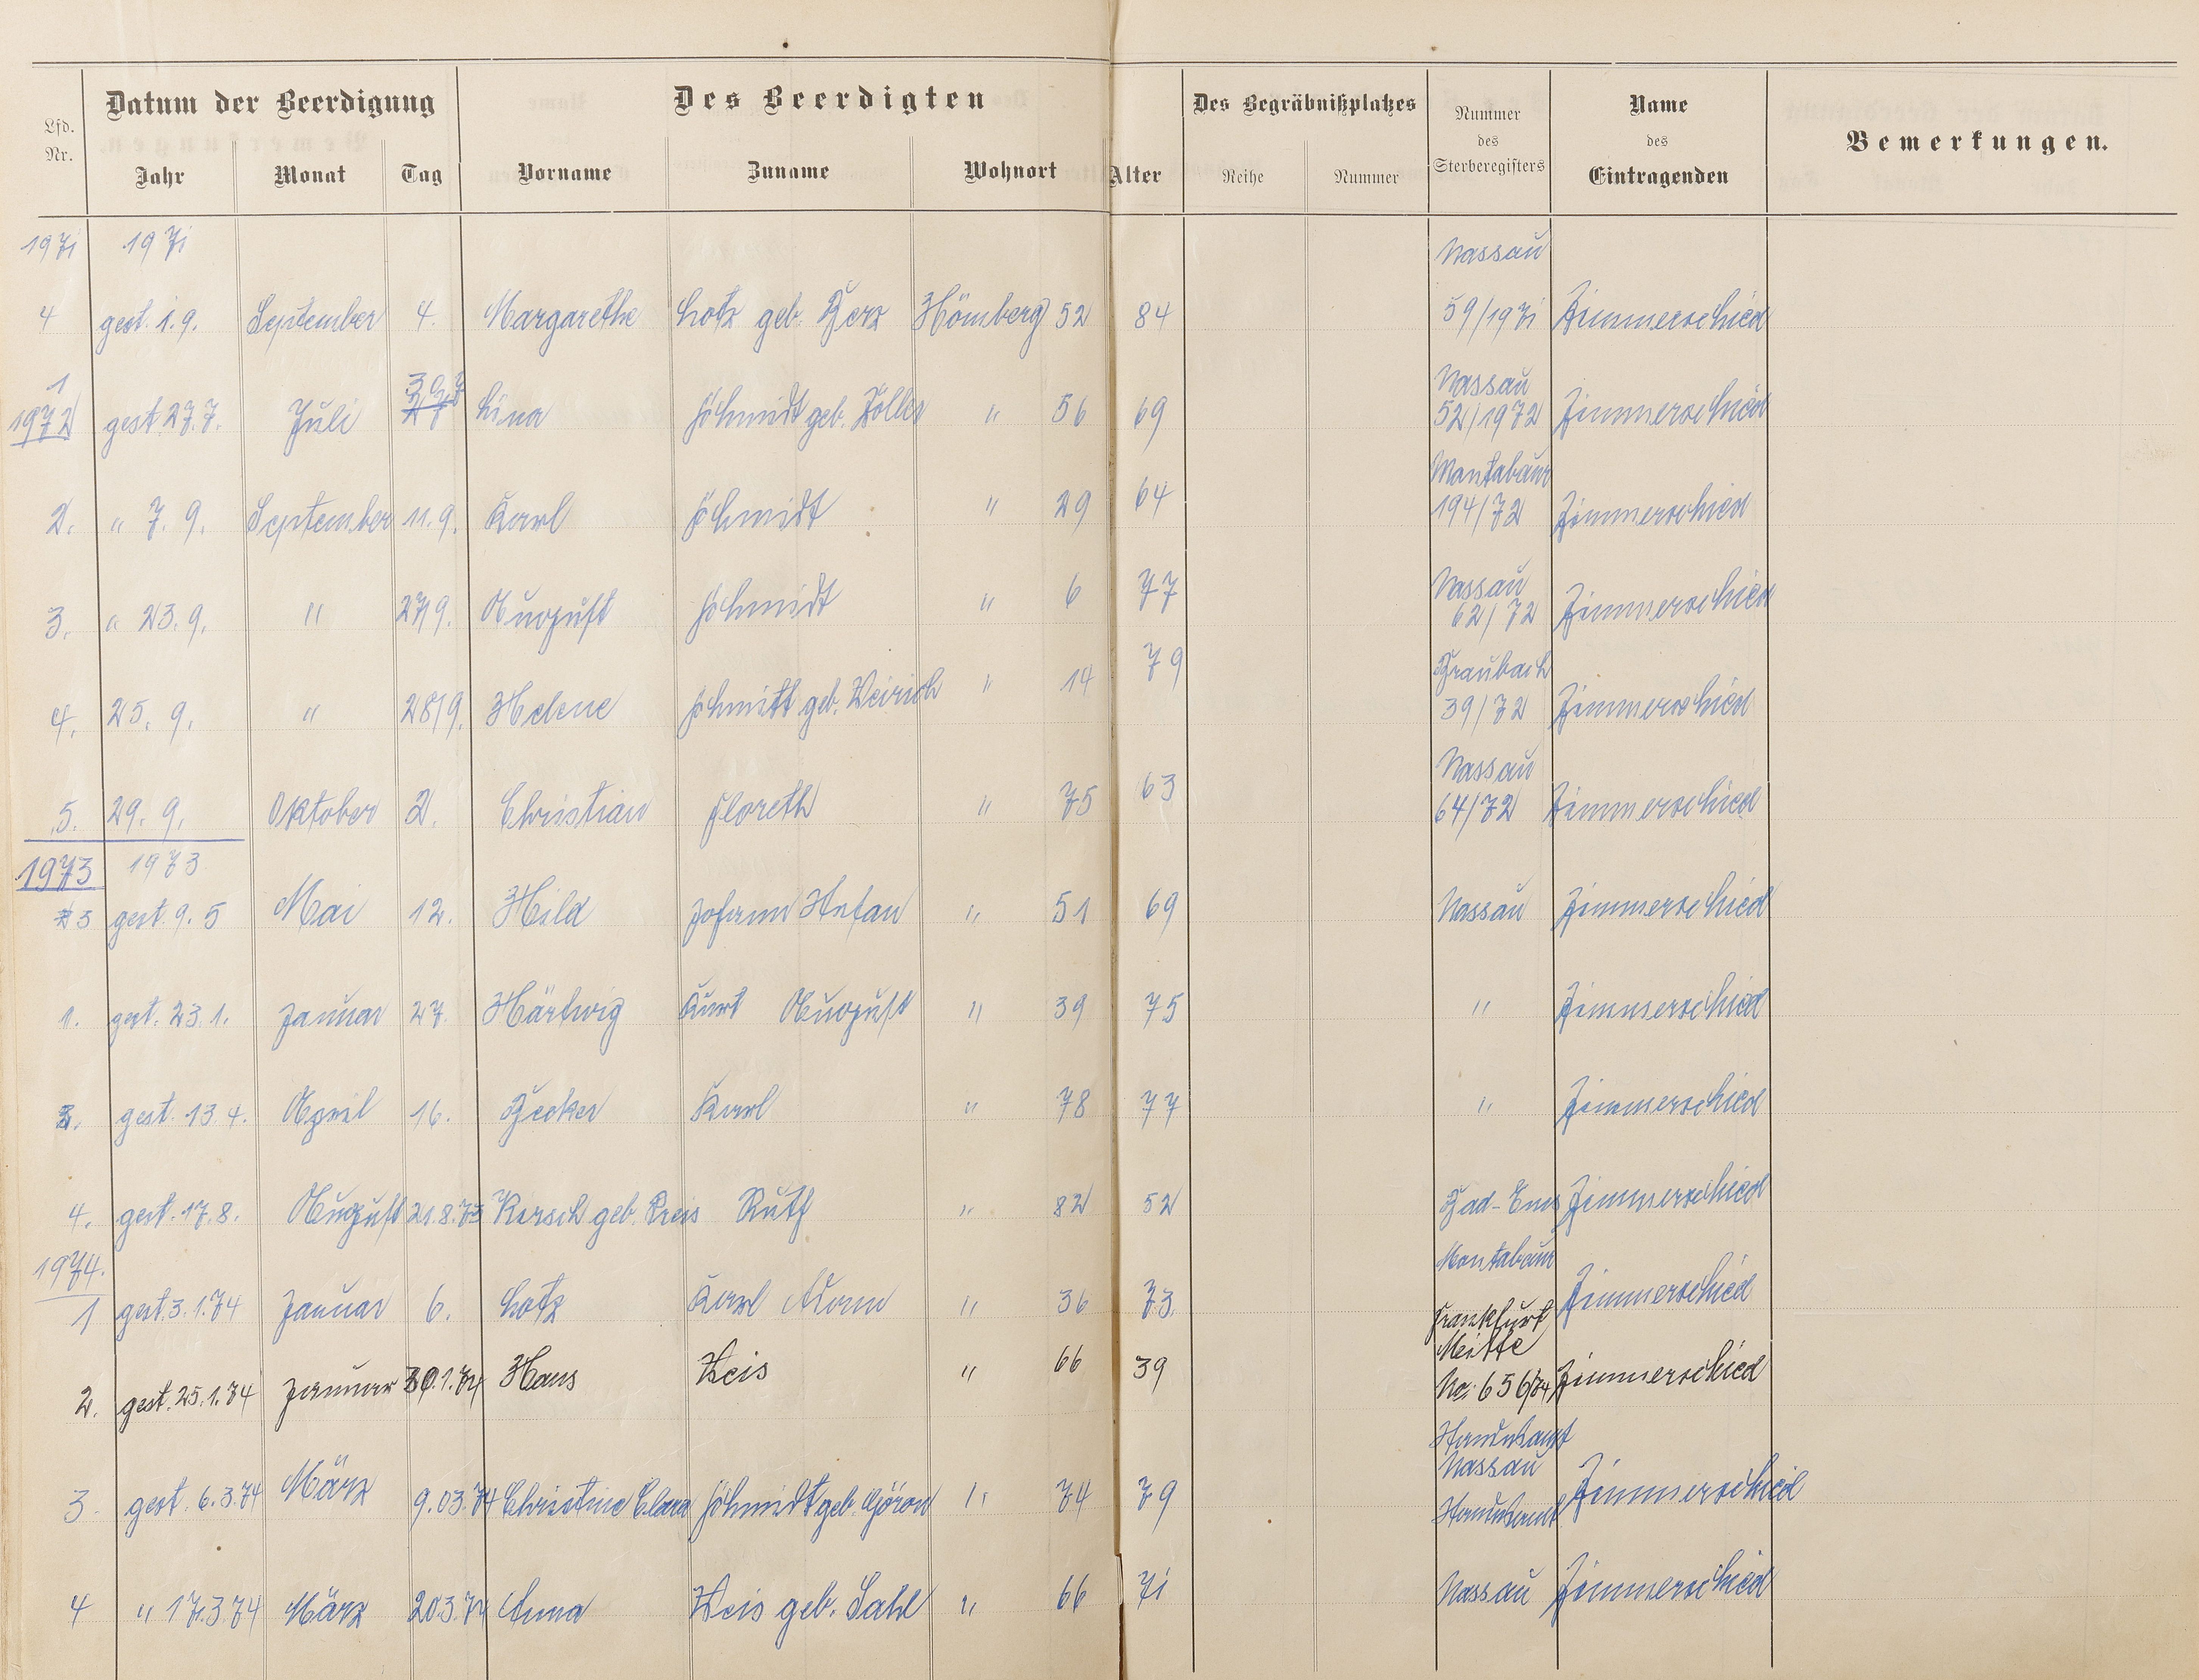 Lfd. Nr. Datum der Beerdigung Des Beerdigten Des Begräbnißplatzes Nummer des Sterberegisters Name des Eintragenden Bemerkungen.
Jahr Monat Tag Vorname Zuname Wohnort Alter Reihe Nummer
1971 1971 Nassau
4 gest. 1.9. September 4. Margarethe Lotz geb. Herz Hömberg 52 84 59/1971 Zimmerschied
1 Nassau
1972 gest. 27.7. Juli 30.7 27 Lina Schmidt geb. " 56 69 52/1972 Zimmerschied
Montabaur
2. " 7. 9. September 11.9. Karl Schmidt " 29 64 194/72 Zimmerschied
Nassau
3. " 23.9. " 27/9. August Schmidt " 6 77 62/72 Zimmerschied
Braubach
4. 25. 9. " 28/9. Helene Schmitt geb. Weirich " 14 79 39/72 Zimmerschied
Nassau
5. 29. 9. Oktober 2. Christian Floreth " 75 63 64/72 Zimmerschied
1973 1973
3 gest. 9. 5 Mai 12. Hild Johann Stefan " 51 69 Nassau Zimmerschied
1. gest. 23.1. Januar 27. Härtwig Kurt August " 39 75 " Zimmerschied
2. gest. 13.4. April 16. Becker Karl " 78 77 " Zimmerschied
4. gest. 17.8. August 21.8.73 Kersch geb. Kreis Ruth " 82 52 Bad-Ems Zimmerschied
1974. Montabaur
1 gest. 3.1.74 Januar 6. Lotz Karl Adam " 36 73. Zimmerschied
Frankfurt
Mitte
2. gest. 25.1.74 Januar 30.1.74 Hans Weis " 66 39 No: 656/74 Zimmerschied
Standesamt
Nassau
3. gest. 6.3.74 März 9.03.74 Christine Clara Schmidt geb. " 74 79 Zimmerschied
Standesamt
4 " 17.3.74 März 20.3.74 Anna Weis geb. " 66 71 Nassau Zimmerschied